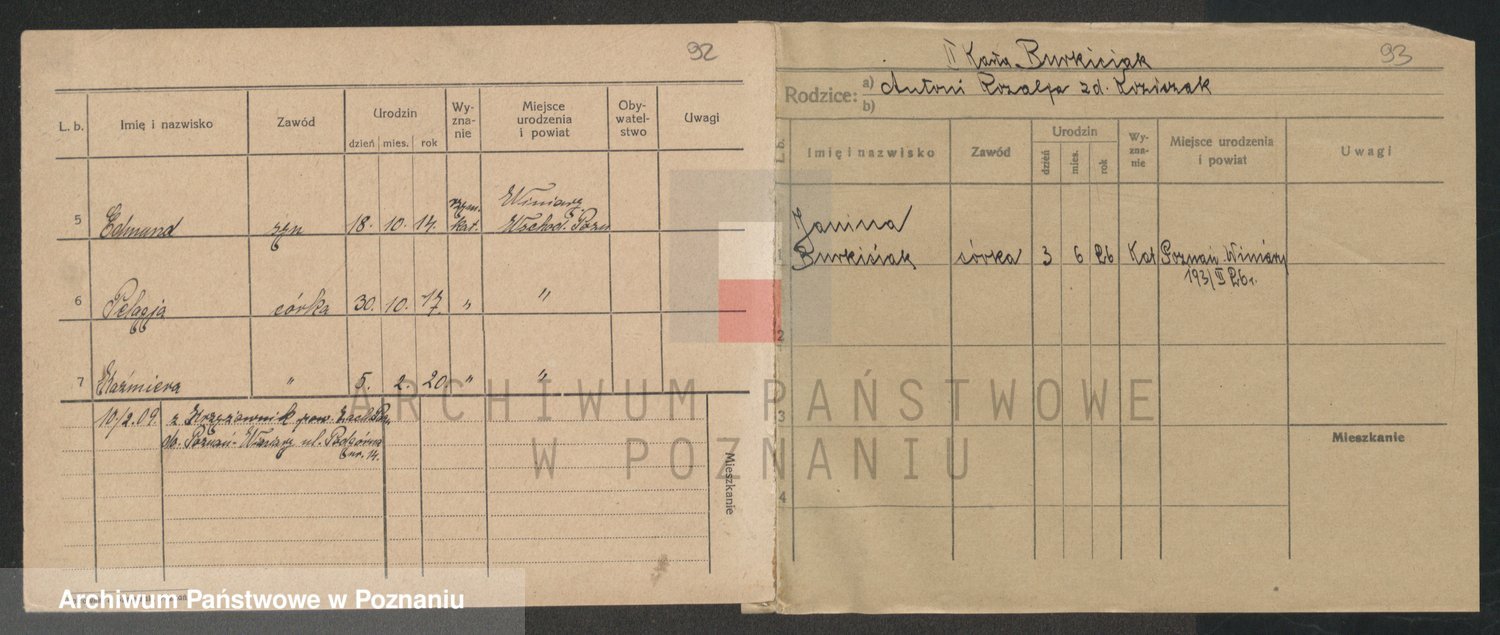 92
L. b.
Imię i nazwisko
Zawód
Urodzin
dzień mies. rok
Wy-
zna-
nie
Miejsce
urodzenia
i powiat
Oby-
watel-
stwo
Uwagi
5 Edmund syn 18. 10. 14. rzym. kat. Winiary Wschod. Pozn
6 Pelagja córka 30. 10. 17. " "
7 Kaźmiera " 5. 2. 20. " "
10/2.09. z Krzyżownik pow.
do Poznań-Winiary ul. Podgórna
nr. 14.
Mieszkanie
93
II Karta Burkiciak
Rodzice: a) Antoni Rozalja zd.
b)
L. b.
Imię i nazwisko
Zawód
Urodzin
dzień mies. rok
Wy-
zna-
nie
Miejsce urodzenia
i powiat
Uwagi
1 Janina
Burkiciak córka 3 6 26 Kat Poznań Winiary
193/II 26 r.
2
3
4
Mieszkanie
ARCHIWUM PAŃSTWOWE
W POZNANIU
Archiwum Państwowe w Poznaniu